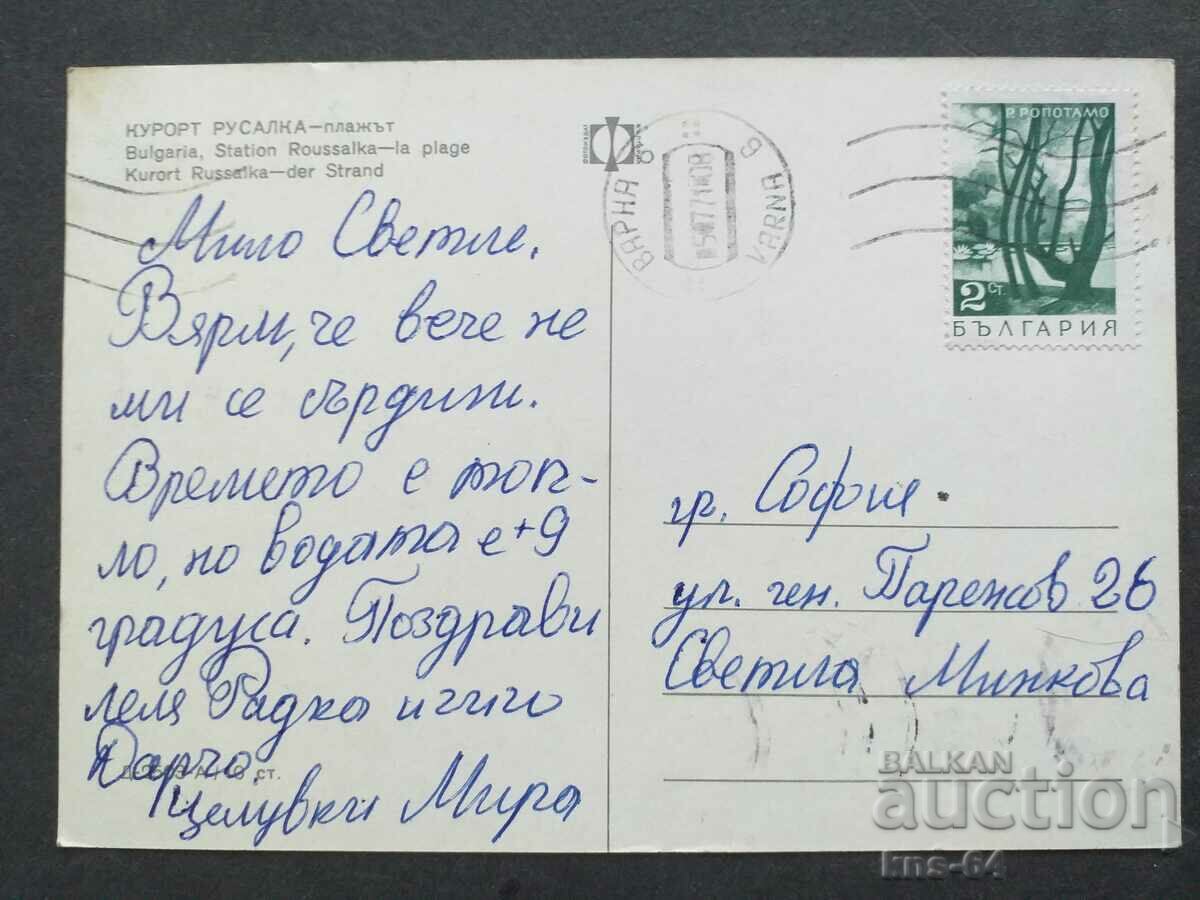 КУРОРТ РУСАЛКА—плажът
Bulgaria, Station Roussalka—la plage
Kurort Russalka—der Strand
Мило Светле.
Вярм, че вече не
ми се сърдиш.
Времето е топ-
ло, но водата е +9
градуса. Поздрави
леля Радка и чичо
Дарчо.
Целувки Мира
ст.
ВАРНА 6
VARNA 6
Р. РОПОТАМО
2 СТ.
БЪЛГАРИЯ
гр. София.
ул. ген. Паренсов 26
Светла Минкова
BALKAN
auction
kns-64